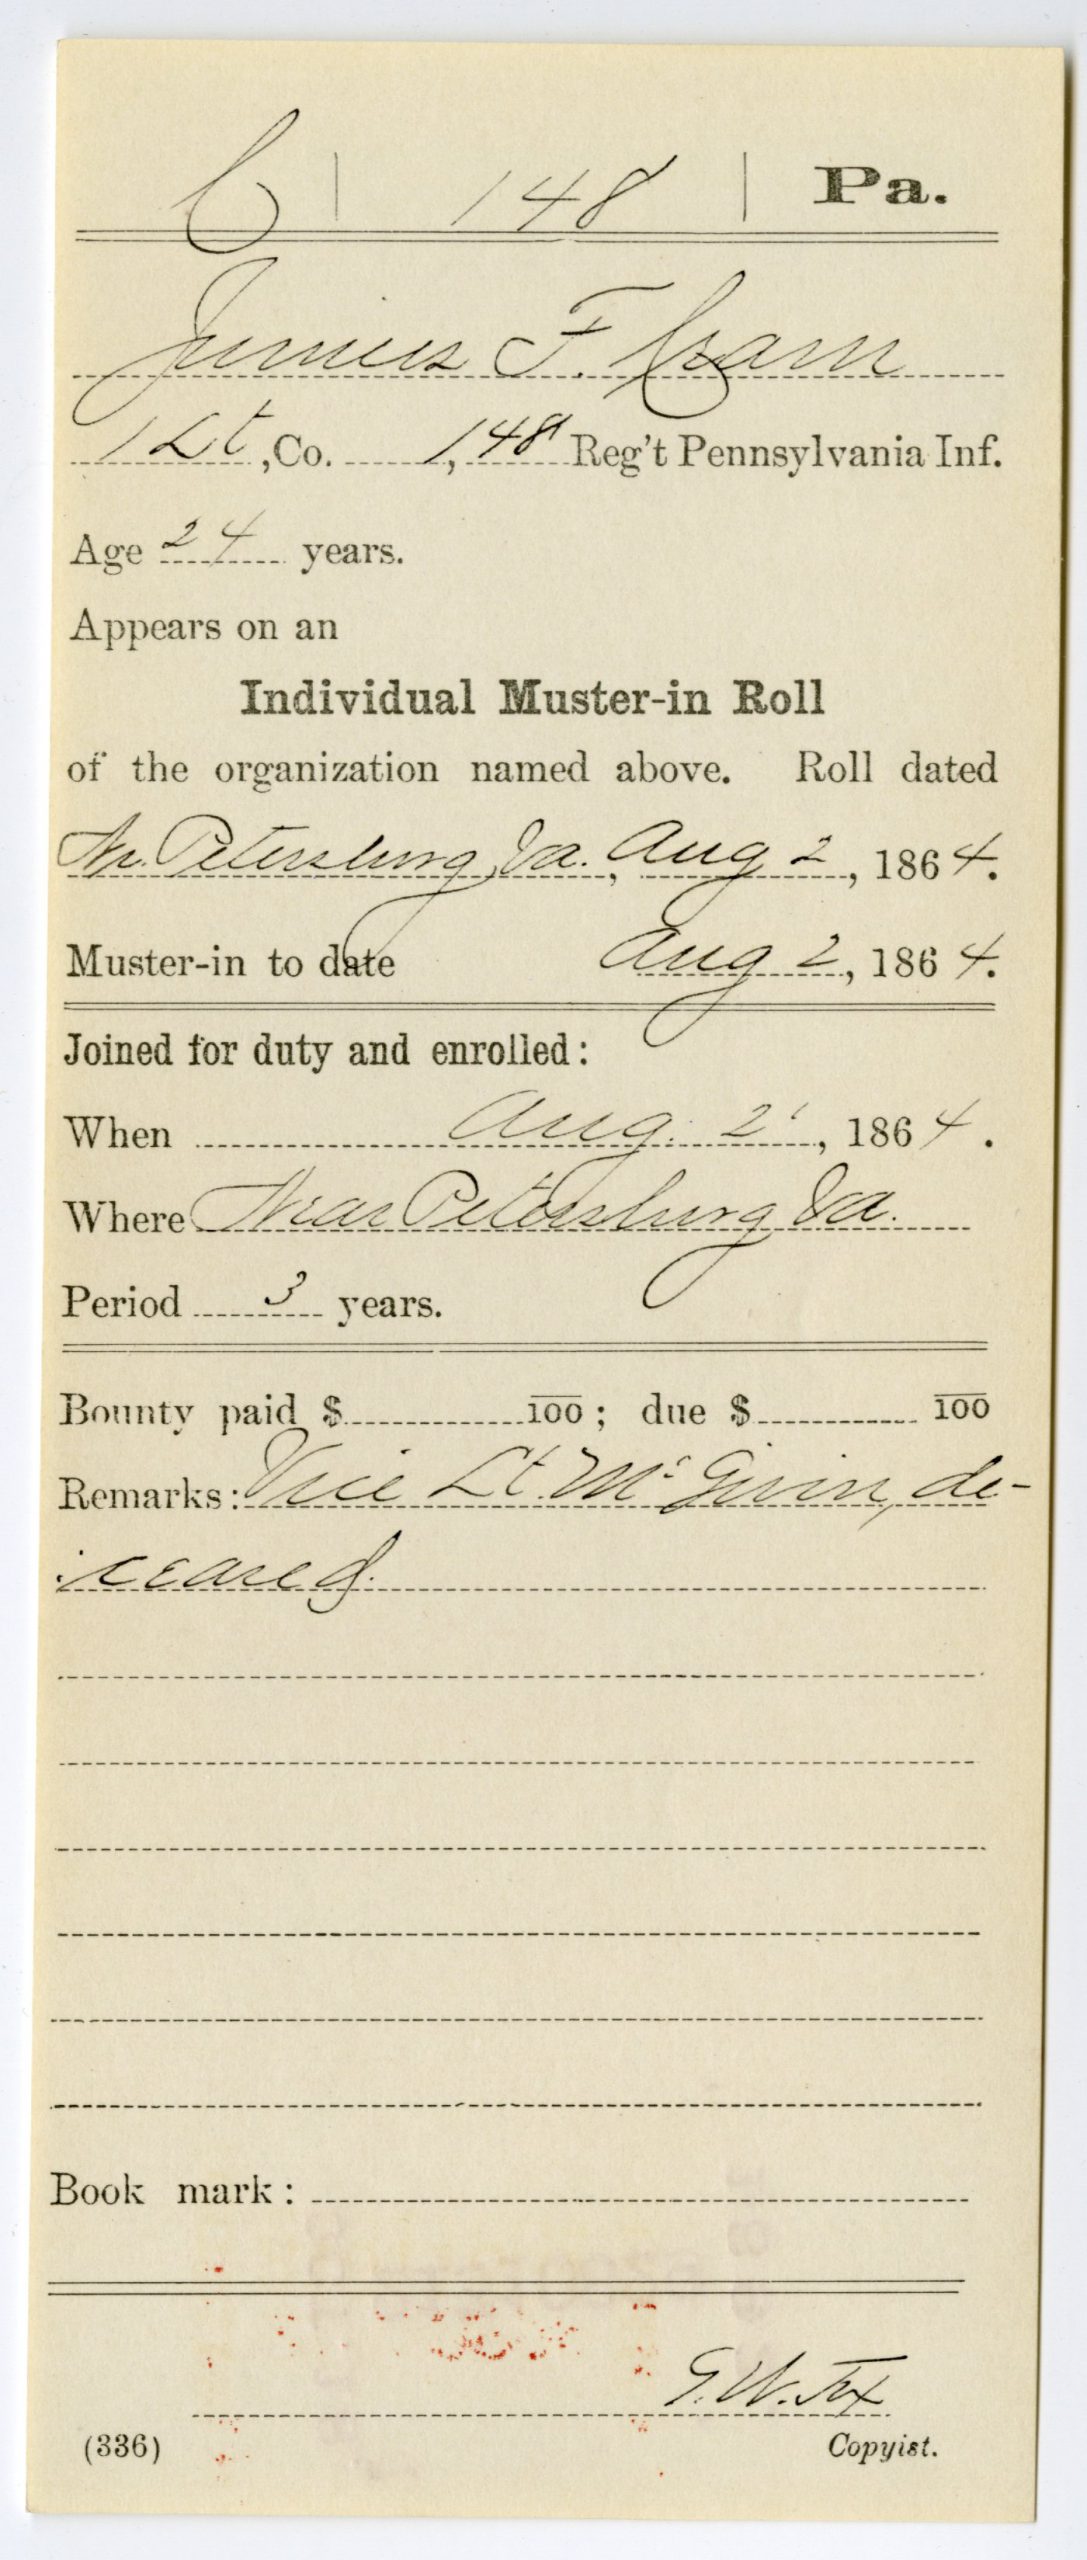 C | 148 | Pa.
Junius F. Cram
1 Lt, Co. , 148 Reg't Pennsylvania Inf.
Age 24 years.
Appears on an
Individual Muster-in Roll
of the organization named above. Roll dated
Nr. Petersburg, Va., Aug 2, 1864.
Muster-in to date Aug 2, 1864.
Joined for duty and enrolled:
When Aug. 2, 1864.
Where Near Petersburg, Va.
Period 3 years.
Bounty paid $ 100; due $ 100
Remarks: Vice Lt. McGuin, de-
ceased.
Book mark:
G. W. Fox
(336) Copyist.